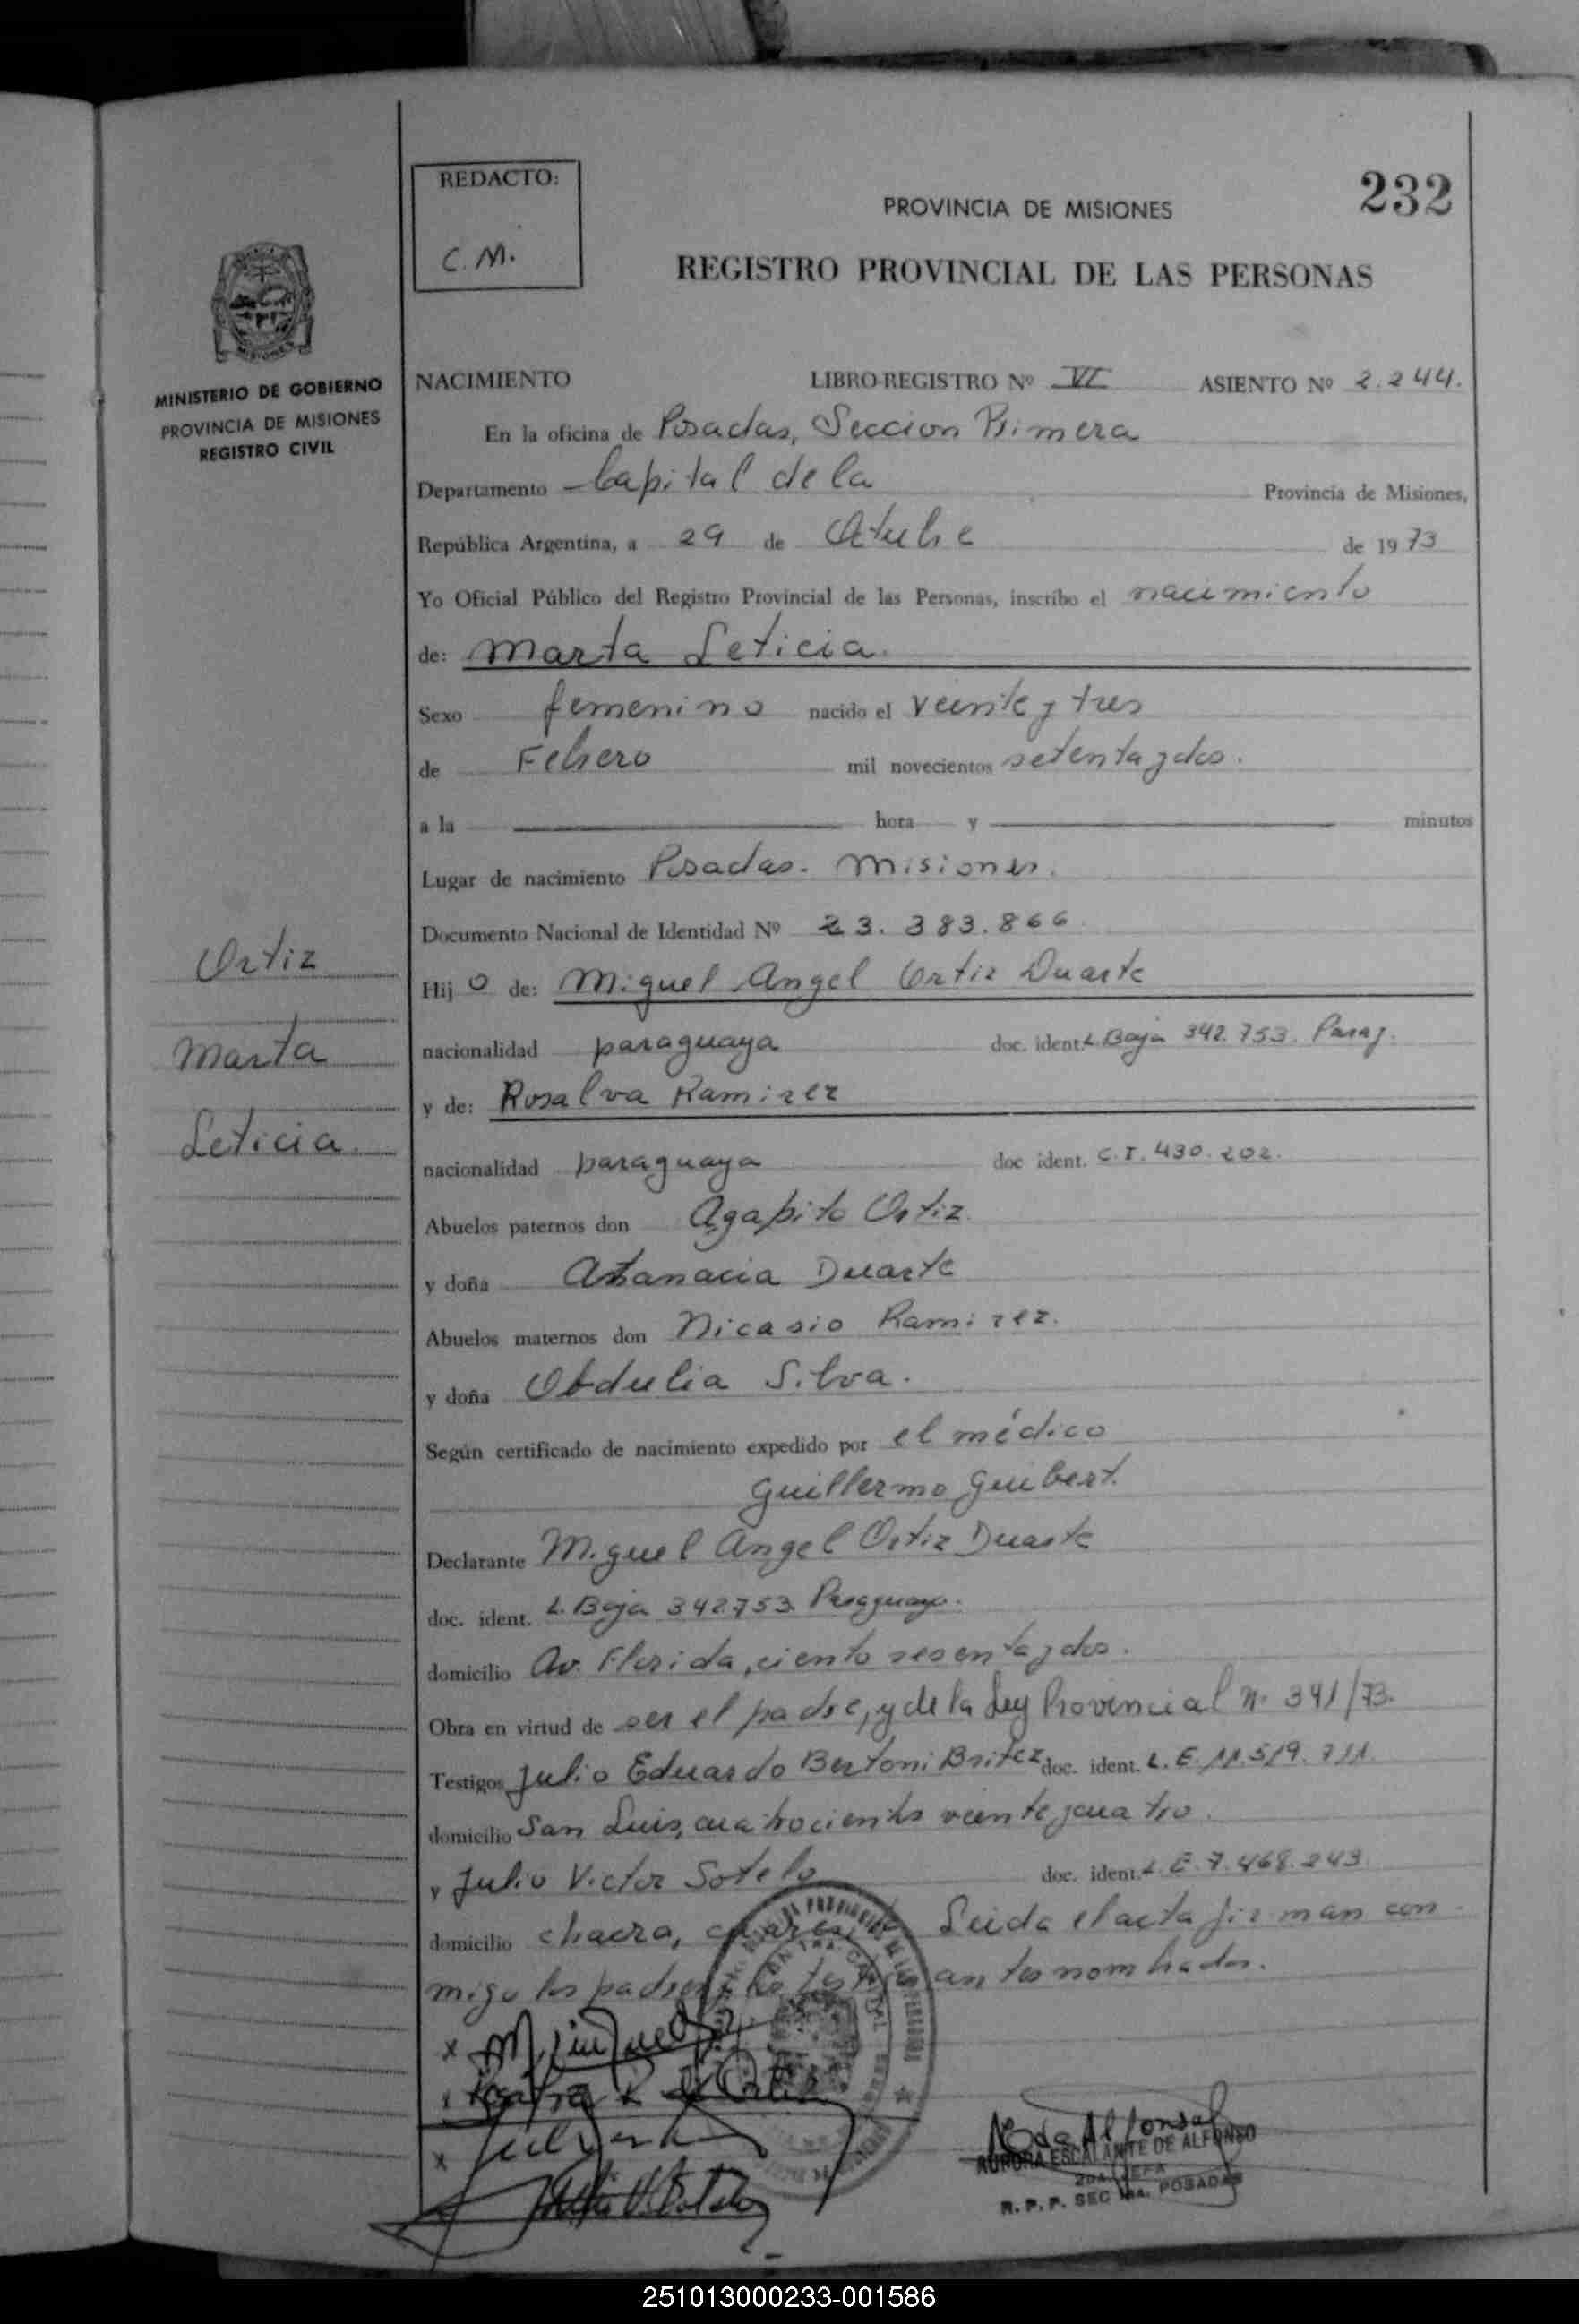 REDACTO:
C. M.
232
PROVINCIA DE MISIONES
REGISTRO PROVINCIAL DE LAS PERSONAS
MISIONES
MINISTERIO DE GOBIERNO
PROVINCIA DE MISIONES
REGISTRO CIVIL
NACIMIENTO LIBRO-REGISTRO Nº VI ASIENTO Nº 2.244.
En la oficina de Posadas, Seccion Primera
Departamento Capital de la Provincia de Misiones,
República Argentina, a 29 de Octubre de 1973
Yo Oficial Público del Registro Provincial de las Personas, inscribo el nacimiento
de: Marta Leticia.
Sexo femenino nacido el veinte y tres
de Febrero mil novecientos setenta y dos.
a la hora y minutos
Lugar de nacimiento Posadas. Misiones.
Documento Nacional de Identidad Nº 23.383.866
Ortiz
Marta
Leticia.
Hij o de: Miguel Angel Ortiz Duarte
nacionalidad paraguaya doc. ident. L Baja 342.753. Parag.
y de: Rosalva Ramirez
nacionalidad paraguaya doc ident. C.I. 430.202.
Abuelos paternos don Agapito Ortiz
y doña Atanacia Duarte
Abuelos maternos don Nicasio Ramirez.
y doña Obdulia Silva.
Según certificado de nacimiento expedido por el médico
Guillermo Guibert.
Declarante Miguel Angel Ortiz Duarte
doc. ident. L. Baja 342753 Paraguaya.
domicilio Av. Florida, ciento sesenta y dos.
Obra en virtud de ser el padre, y de la Ley Provincial nº 341/73.
Testigos Julio Eduardo Bertoni Britez doc. ident. L.E. 11.519.711.
domicilio San Luis, cuatrocientos veinte y cuatro.
y Julio Victor Sotelo doc. ident. L.E. 7.468.243
domicilio chacra, Leida el acta firman con-
migo los padres y los testigos antes nombrados.
AURORA ESCALANTE DE ALFONSO
2da. JEFA
R. P. P. SEC 1ra. POSADAS
251013000233-001586